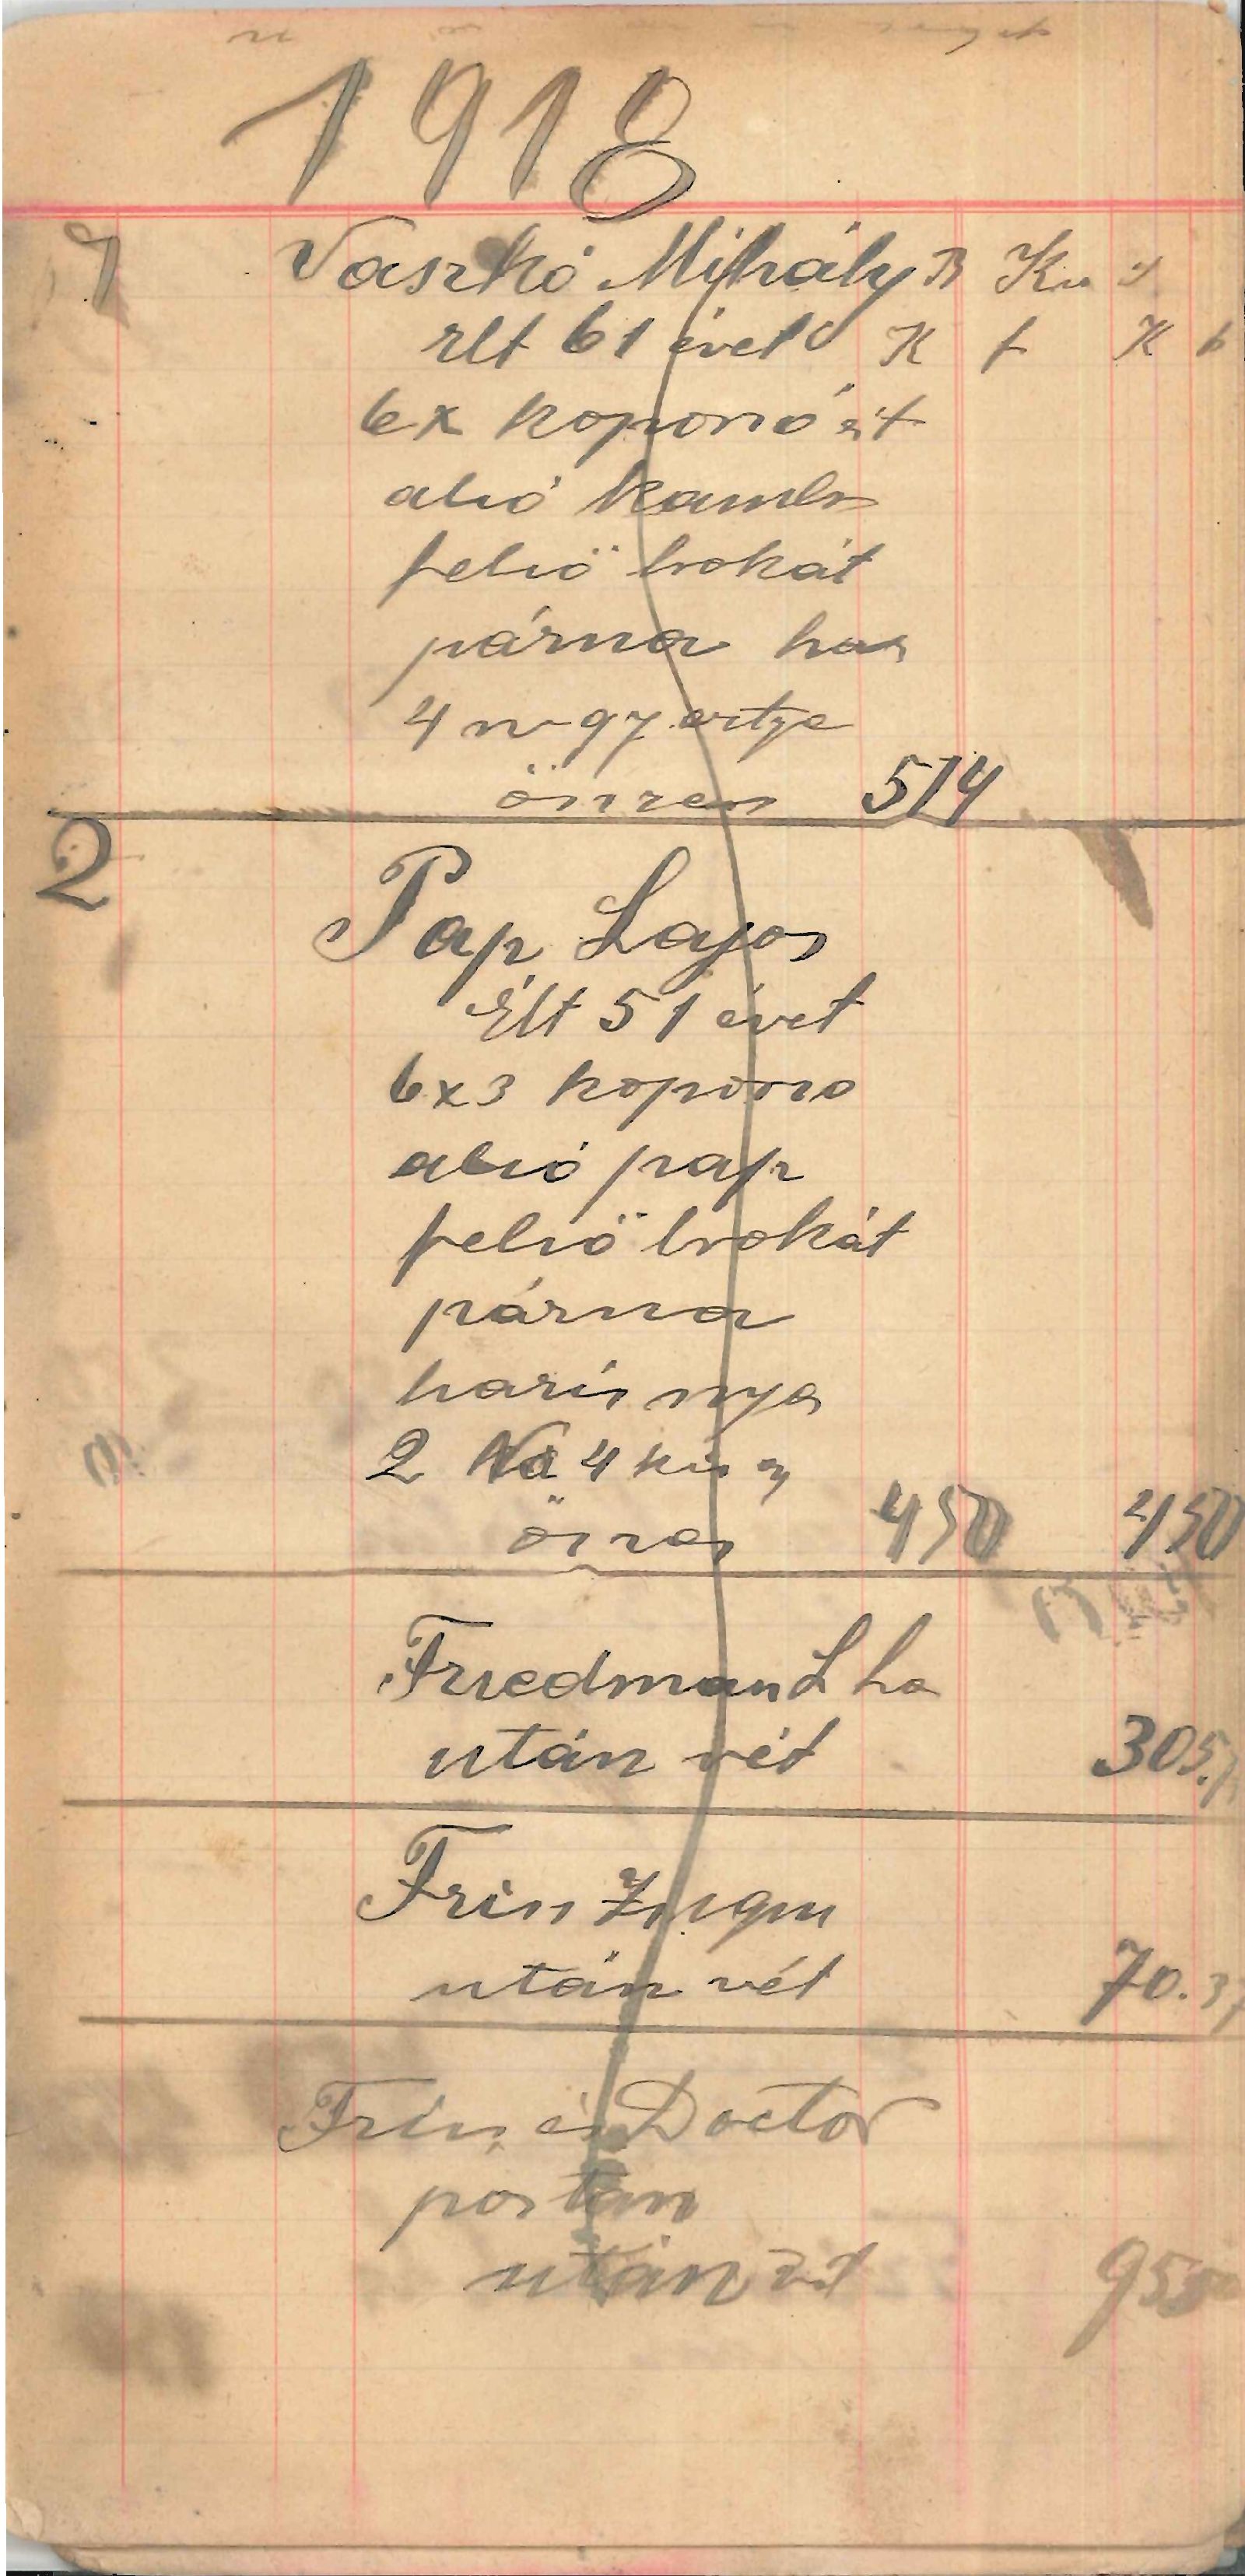 1918
1 Vaszkó Mihály
élt 61 évet K f K f
6x koporsó
alsó
felső brokát
párna has
4
öszes 514
2
Pap Lajos
Élt 51 évet
6x3 koporso
alsó pap
felső brokát
párna
harisnya
2 4 kis
öszes 450 450
Friedman L
után vét 305.
Fris Zsigm
után vét 70.37
Fris és Doctor
postan
után vét 955